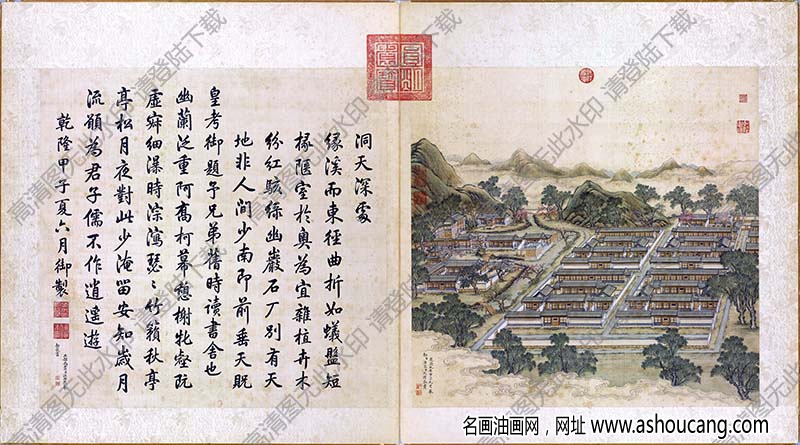 洞天深處
緣溪而東徑曲折如蟻盤短
椽陋室於奥為宜雜植卉木
紛紅駭綠幽巖石厂別有天
地非人間少南即前垂天貺
皇考御題予兄弟舊時讀書舍也
幽蘭泛重阿喬柯幕憩榭牝壑既
虛寂細瀑時淙瀉瑟〻竹籟秋亭
亭松月夜對此少淹留安知歲月
流願為君子儒不作逍遙遊
乾隆甲子夏六月御製
高清图无此水印 请登陆下载
名画油画网，网址 www.ashoucang.com